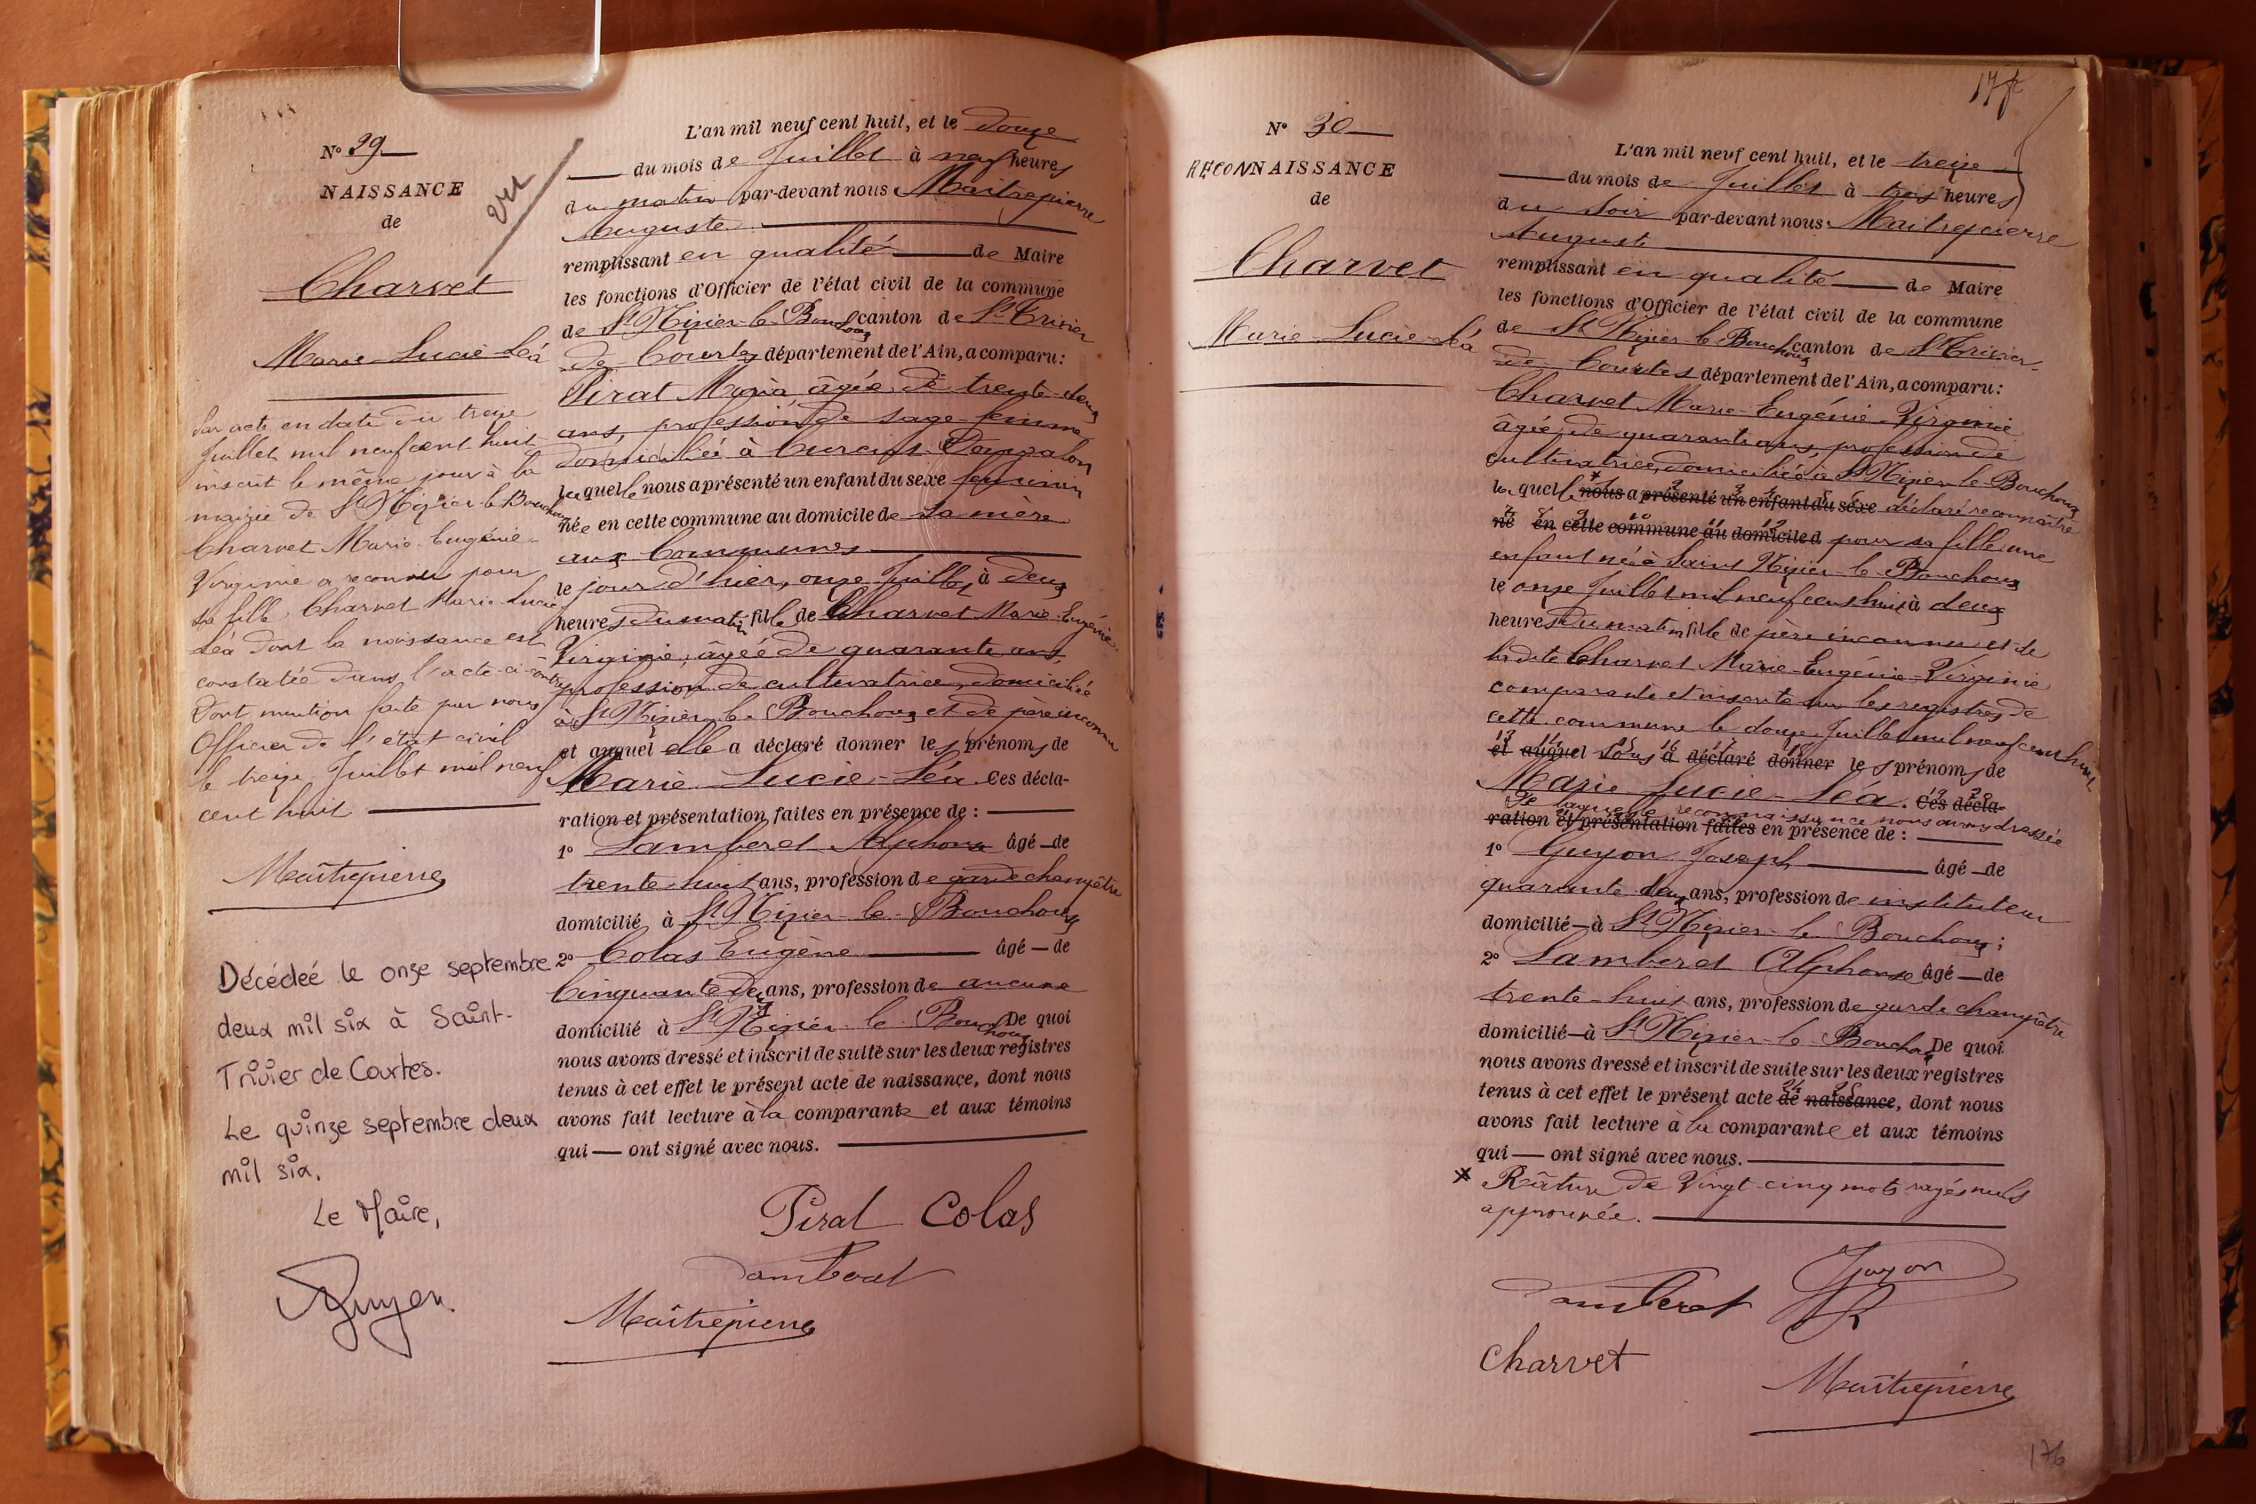 N° 29
NAISSANCE
de
Charvet
Marie-Lucie-Léa
vu
Par acte en date du treize
Juillet mil neuf cent huit
inscrit le même jour à la
mairie de St Nizier-le-Bouchoux
Charvet Marie-Eugénie-
Virginie a reconnu pour
sa fille, Charvet Marie-Lucie
Léa dont la naissance est
constatée dans l'acte-ci-contre
Dont mention faite par nous
Officier de l'état civil
le treize Juillet mil neuf
cent huit
Maîtrepierre
Décédeé le onze septembre
deux mil six à Saint-
Trivier de Courtes.
Le quinze septembre deux
mil six.
Le Maire,
L'an mil neuf cent huit, et le douze
du mois de Juillet à neuf heures
du matin par-devant nous Maitrepierre
Auguste
remplissant en qualité de Maire
les fonctions d'Officier de l'état civil de la commune
de St Nizier-le-Bouchoux canton de St Trivier
de Courtes département de l'Ain, a comparu:
Pirat Maria, âgée de trente-deux
ans, profession de sage-femme
domiciliée à Curciat-Dongalon
laquelle nous a présenté un enfant du sexe féminin
née en cette commune au domicile de sa mère
aux Communes
le jour d'hier, onze Juillet à deux
heures du matin fille de Charvet Marie-Eugénie-
Virginie, âgée de quarante ans,
profession de cultivatrice, domiciliée
à St Nizier-le-Bouchoux et de père inconnu
et auquel elle a déclaré donner les prénoms de
Marie-Lucie-Léa. Ces décla-
ration et présentation faites en présence de :
1° Lamberet Alphonse âgé de
trente-huit ans, profession de garde champêtre
domicilié à St Nizier-le-Bouchoux
2° Colas Eugène âgé de
Cinquante-deux ans, profession de aucune
domicilié à St Nizier-le-Bouchoux De quoi
nous avons dressé et inscrit de suite sur les deux registres
tenus à cet effet le présent acte de naissance, dont nous
avons fait lecture à la comparante et aux témoins
qui ont signé avec nous.
Pirat Colas
Lamberet
Maîtrepierre
N° 30
RECONNAISSANCE
de
Charvet
Marie-Lucie-Léa
L'an mil neuf cent huit, et le treize
du mois de Juillet à trois heures
du soir par-devant nous Maitrepierre
Auguste
remplissant en qualité de Maire
les fonctions d'Officier de l'état civil de la commune
de St Nizier-le-Bouchoux canton de St Trivier-
de Courtes département de l'Ain, a comparu:
Charvet Marie-Eugénie-Virginie
âgée de quarante ans, profession de
cultivatrice, domiciliée à St Nizier-le-Bouchoux
laquelle nous a présenté un enfant du sexe déclaré reconnaître
né en cette commune au domicile d pour sa fille une
enfant née à Saint Nizier-le-Bouchoux
le onze Juillet mil neuf cent huit à deux
heures du matin fille de père inconnu et de
ladite Charvet Marie-Eugénie-Virginie
comparante et inscrite sur les registres de
cette commune le douze Juillet mil neuf cent huit
13 14 15 16 17 18
et auquel a déclaré donner les prénoms de
Marie-Lucie-Léa. Ces décla-
De laquelle reconnaissance nous avons dressée
ration et présentation faites en présence de :
1° Guyon Joseph âgé de
quarante deux ans, profession de instituteur
domicilié à St Nizier-le-Bouchoux;
2° Lamberet Alphonse âgé de
trente-huit ans, profession de garde champêtre
domicilié à St Nizier-le-Bouchoux De quoi
nous avons dressé et inscrit de suite sur les deux registres
24 25
tenus à cet effet le présent acte de naissance, dont nous
avons fait lecture à la comparante et aux témoins
qui ont signé avec nous.
* Râture de Vingt-cinq mots rayés nuls
approuvée.
Guyon
Lamberet
Charvet
Maîtrepierre
176